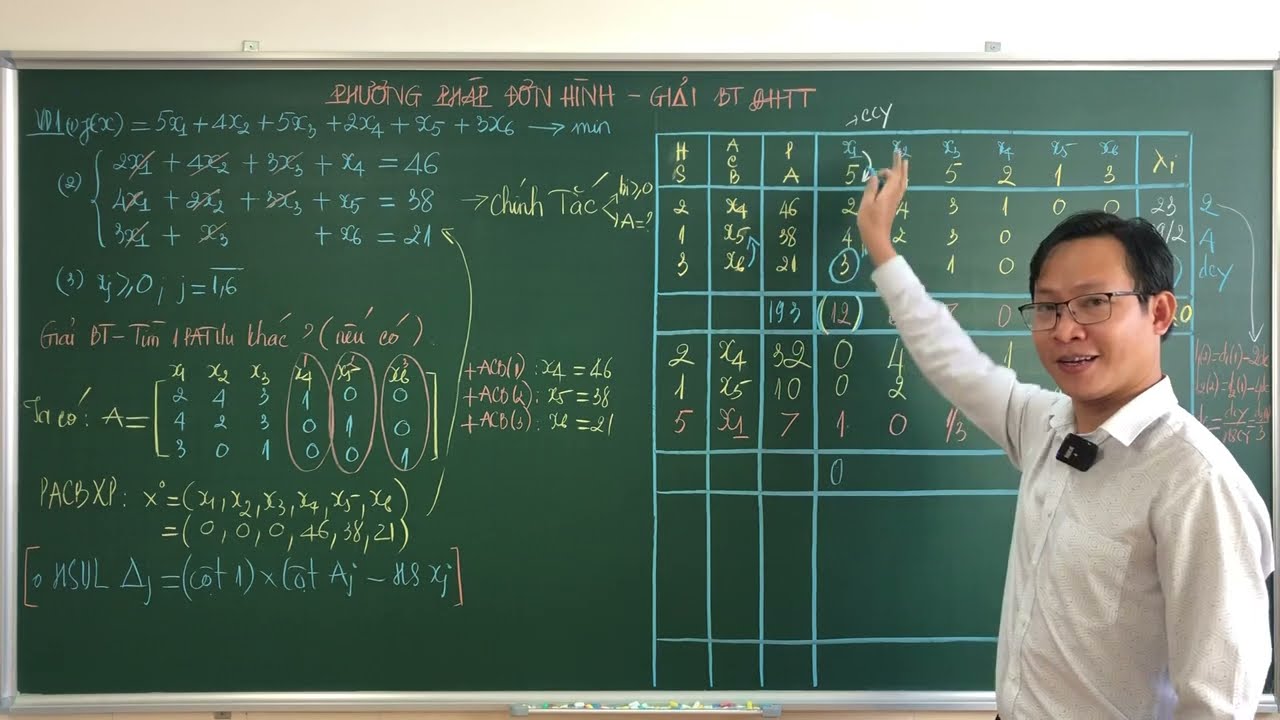 PHƯƠNG PHÁP ĐƠN HÌNH - GIẢI BT QHTT
VD1 (1) f(x) = 5x1 + 4x2 + 5x3 + 2x4 + x5 + 3x6 → min
(2) { 2x1 + 4x2 + 3x3 + x4 = 46
4x1 + 2x2 + 3x3 + x5 = 38
3x1 + x3 + x6 = 21
→ chính Tắc
bi ≥ 0
A = ?
(3) xj ≥ 0 ; j = 1,6
Giải BT - Tìm 1 PATƯu khác ? (nếu có).
x1 x2 x3 x4 x5 x6
Ta có: A = [ 2 4 3 1 0 0
4 2 3 0 1 0
3 0 1 0 0 1 ]
+ACB(1) : x4 = 46
+ACB(2) : x5 = 38
+ACB(3) : x6 = 21
PACBXP: x° = (x1, x2, x3, x4, x5, x6)
= (0, 0, 0, 46, 38, 21)
[ o HSƯL Δj = (cột 1) × (cột Aj - HS xj ]
→ CCY
H S A C B P A x1 x2 x3 x4 x5 x6 λi
5 5 2 1 3
2 x4 46 2 4 3 1 0 0 23 2
1 x5 38 4 2 3 0 /2 A
3 x6 21 3 1 0 dcy
193 (12) 0
2 x4 32 0 4 1
1 x5 10 0 2
5 x1 7 1 0 1/3
0